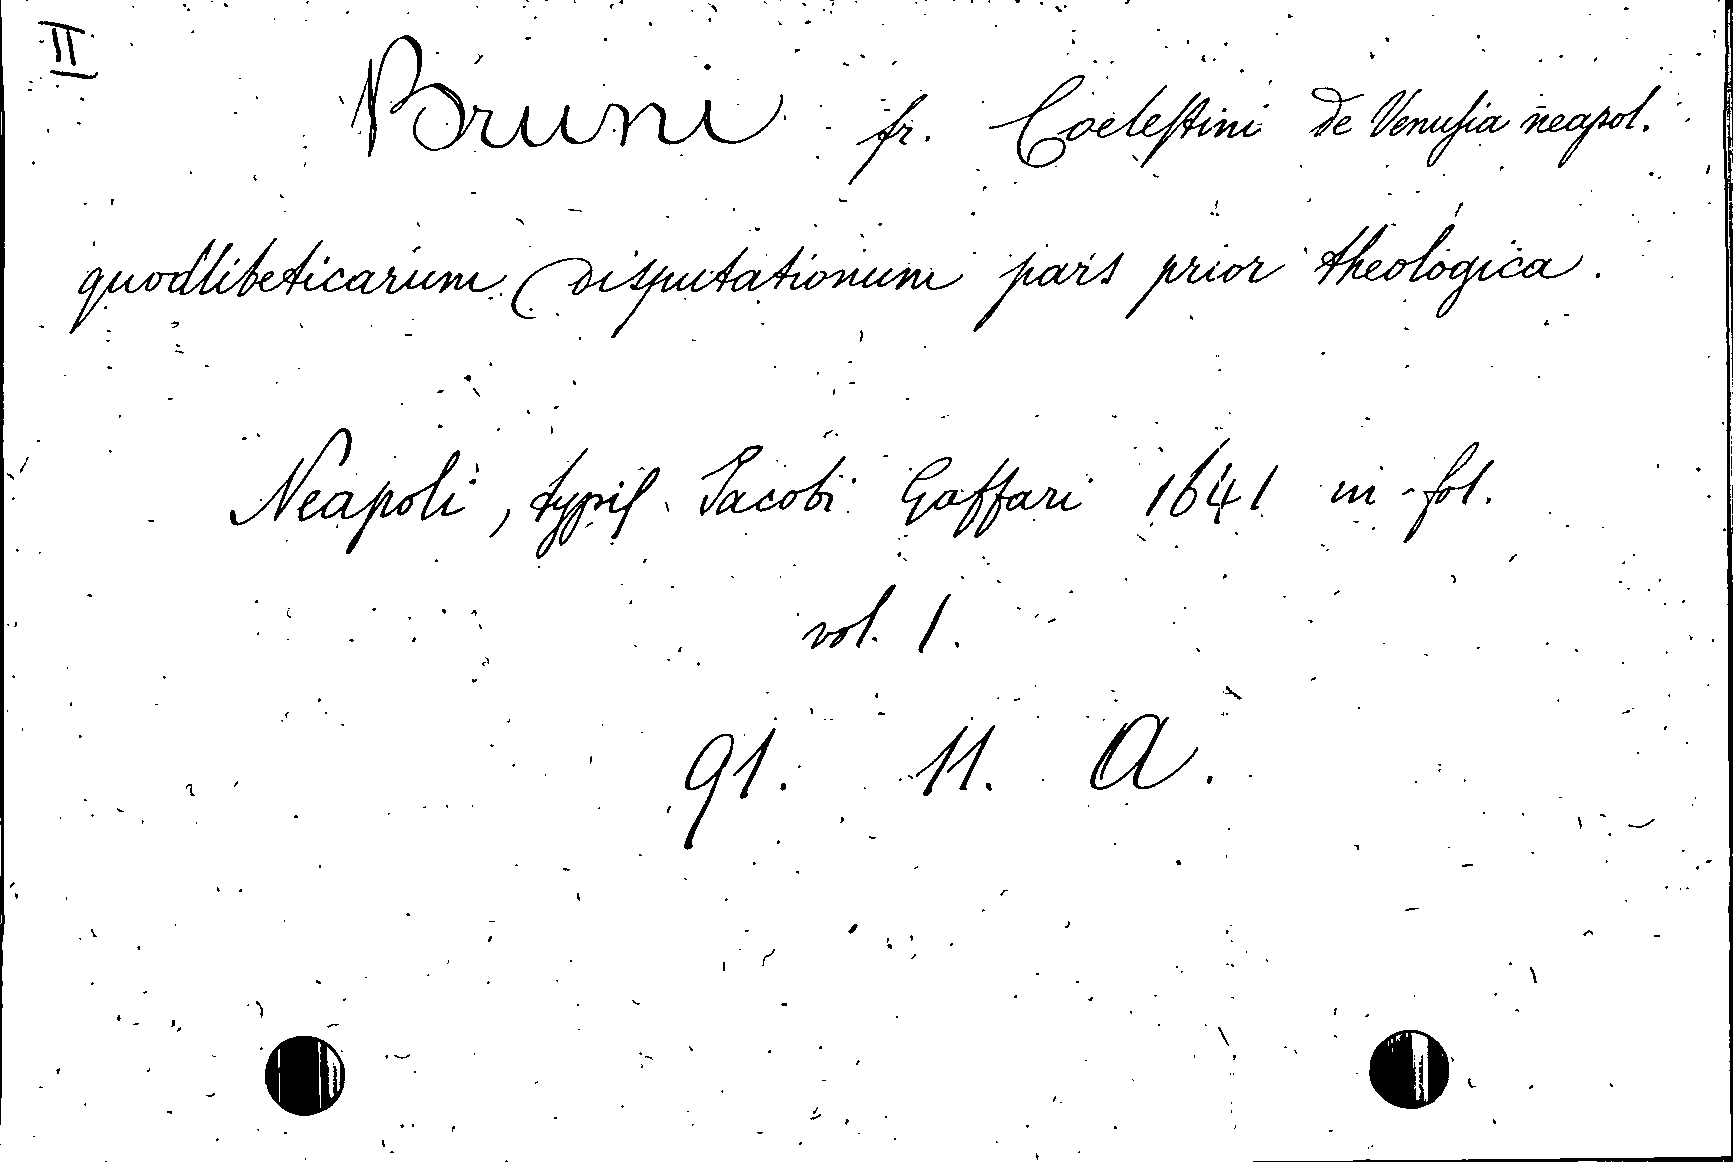 II
Bruni fr. Coeleſtini de Venuſia neapol.
quodlibeticarum Disputationum pars prior theologica.
Neapoli, typiſ Jacobi Gaffari 1641 in-fol.
vol. 1.
91. 11. A.